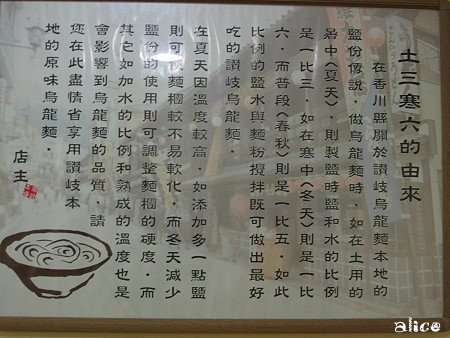 土三寒六的由來
在香川縣關於讚岐烏龍麵本地的
鹽份傳說，做烏龍麵時，如在土用的
暑中（夏天），則製鹽時鹽和水的比例
是一比三，如在寒中（冬天）則是一比
六，而普段（春秋）則是一比五．如此
比例的鹽水與麵粉攪拌既可做出最好
吃的讚岐烏龍麵．
在夏天因溫度較高，如添加多一點鹽
則可使麵糰較不易軟化，而冬天減少
鹽份的使用則可調整麵糰的硬度．而
其它如加水的比例和熟成的溫度也是
會影響到烏龍麵的品質，請
您在此盡情省享用讚岐本
地的原味烏龍麵．
店主
alice